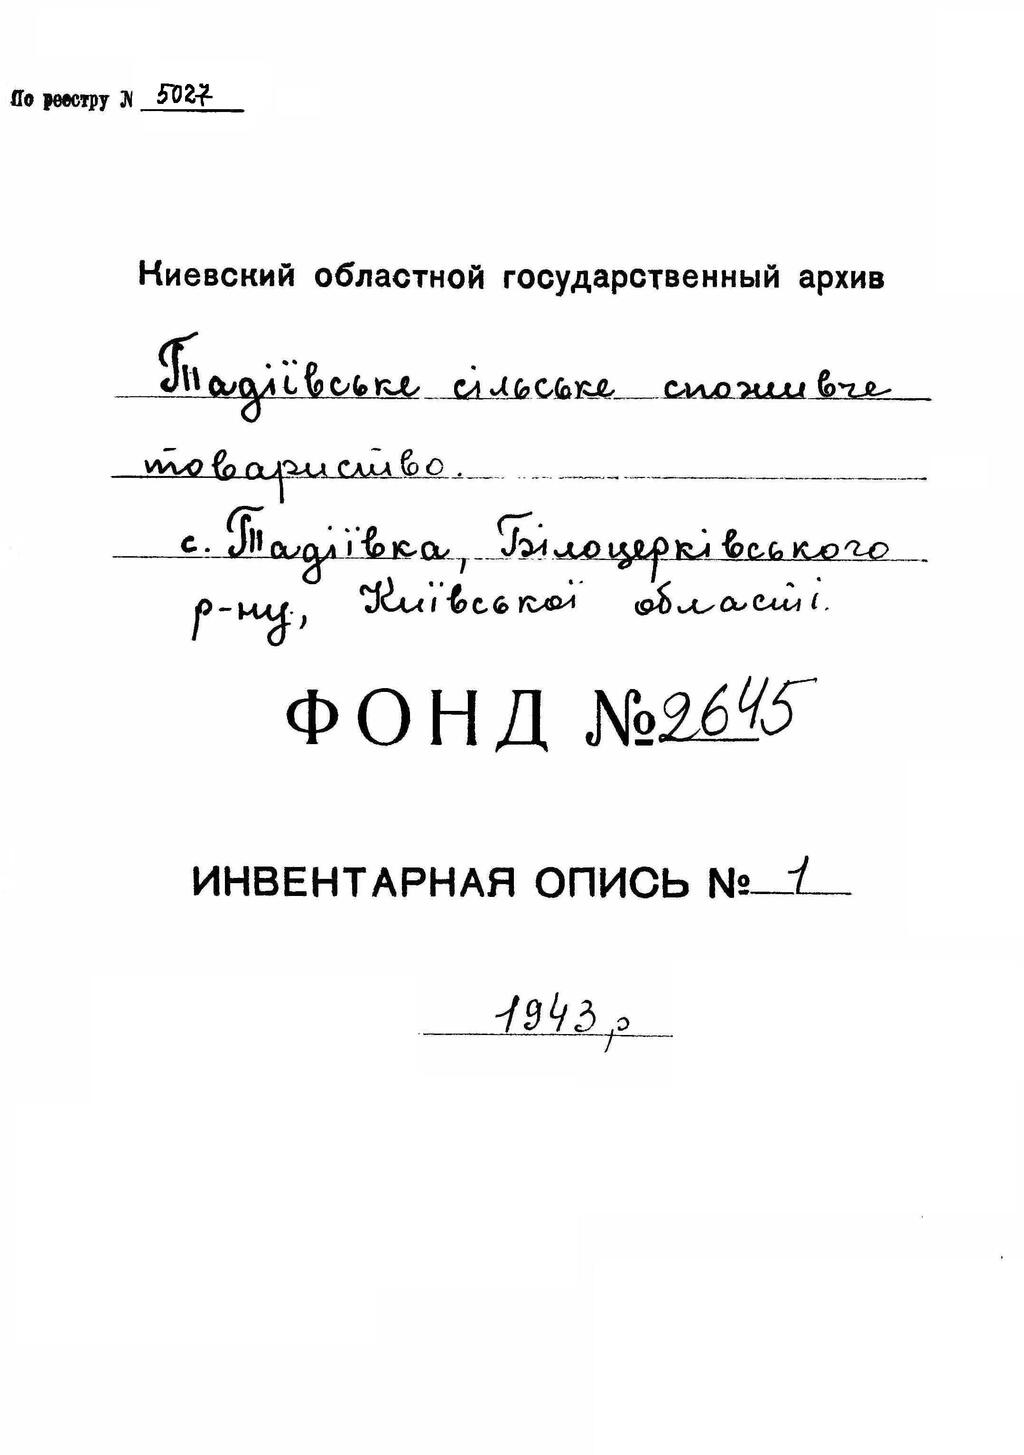 По реестру № 5027
Киевский областной государственный архив
Тадіївське сільське споживче
товариство.
с. Тадіївка, Білоцерківського
р-ну, Київської області.
ФОНД № 2645
ИНВЕНТАРНАЯ ОПИСЬ № 1
1943 р